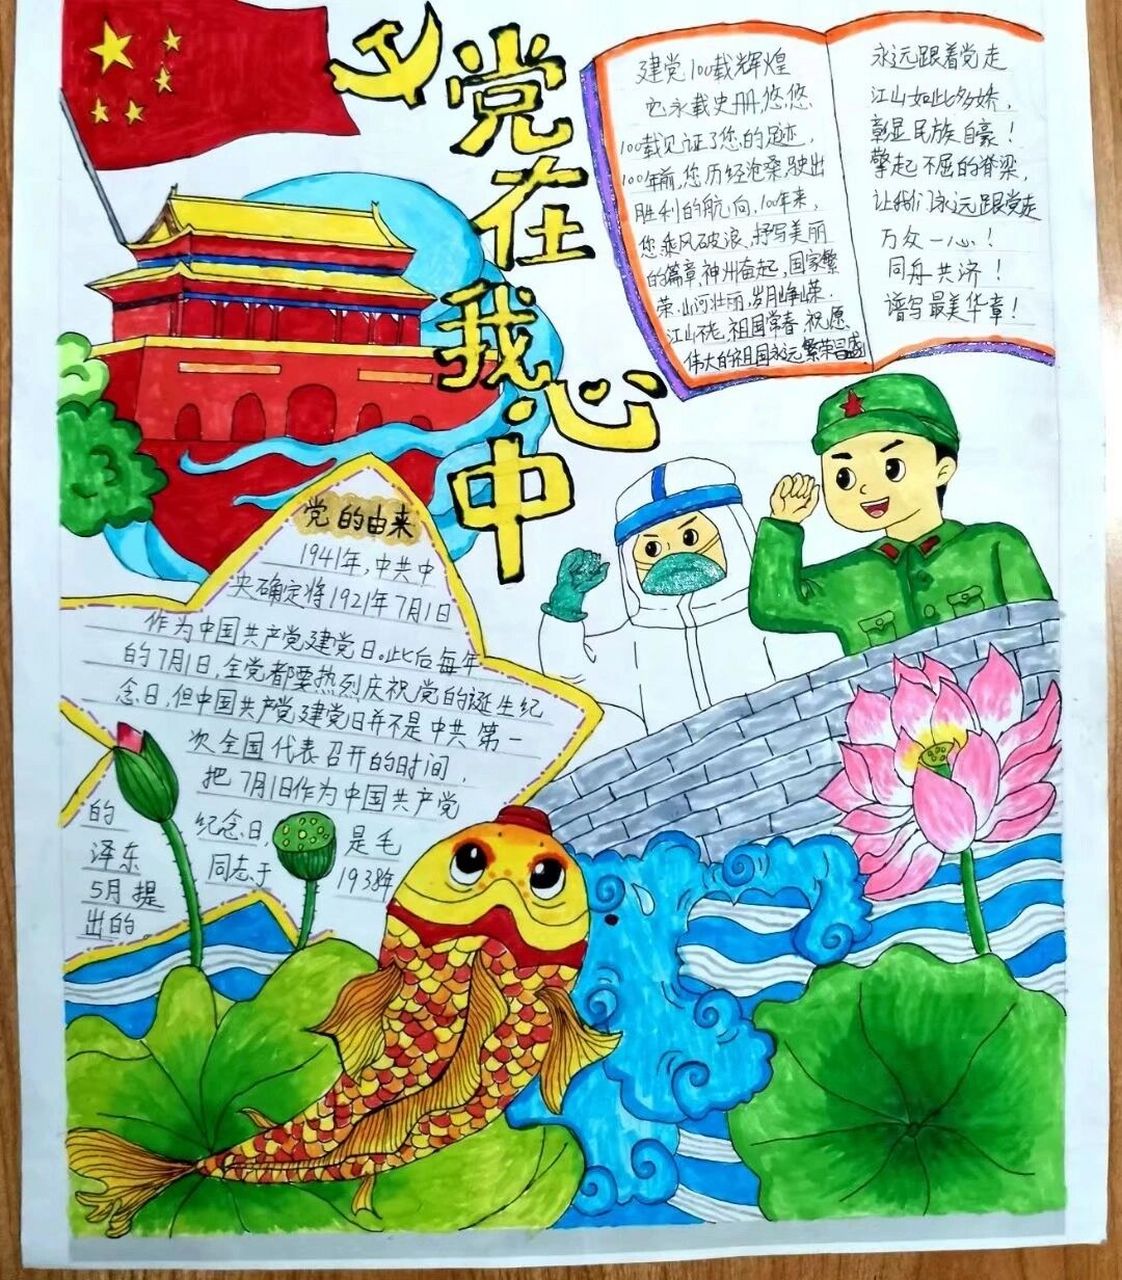 党在我心中
建党100载辉煌
它永载史册,悠悠
100载见证了您的足迹,
100年前,您历经沧桑,驶出
胜利的航向,100年来,
您乘风破浪,抒写美丽
的篇章,神州奋起,国家繁
荣,山河壮丽,岁月峥嵘,
江山不老,祖国常春,祝愿
伟大的祖国永远繁荣昌盛
永远跟着党走
江山如此多娇,
彰显民族自豪!
擎起不屈的脊梁,
让我们永远跟党走
万众一心!
同舟共济!
谱写最美华章!
党的由来
1941年,中共中
央确定将1921年7月1日
作为中国共产党建党日。此后每年
的7月1日,全党都要热烈庆祝党的诞生纪
念日,但中国共产党建党日并不是中共第一
次全国代表召开的时间,
把7月1日作为中国共产党
的 纪念日, 是毛
泽东 同志于 1938年
5月提
出的。